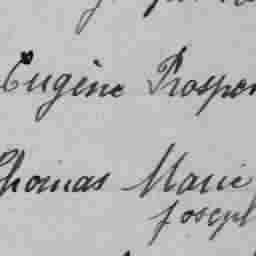 Eugène Prosper
Thomas Marie
Joseph